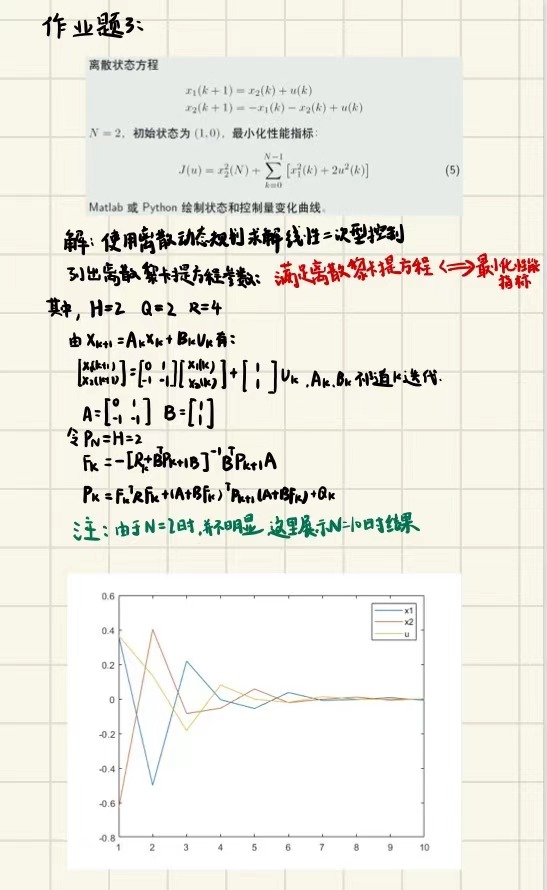 作业题3:
离散状态方程
x₁(k + 1) = x₂(k) + u(k)
x₂(k + 1) = −x₁(k) − x₂(k) + u(k)
N = 2, 初始状态为 (1,0), 最小化性能指标:
J(u) = x₂²(N) + ∑_{k=0}^{N−1} [x₁²(k) + 2u²(k)] (5)
Matlab 或 Python 绘制状态和控制量变化曲线.
解: 使用离散动态规划求解线性二次型控制
列出离散黎卡提方程参数: 满足离散黎卡提方程 <=> 最小化性能
指标
其中, H=2 Q=2 R=4
由 X_{k+1}=A_kX_k+B_kU_k有:
[x₁(k+1) x₂(k+1)]=[0 1 -1 -1][x₁(k) x₂(k)]+[1 1]U_k .A_k.B_k 不随k迭代.
A=[0 1 -1 -1] B=[1 1]
令P_N=H=2
F_k=-[R_k+BᵀP_{k+1}B]⁻¹BᵀP_{k+1}A
P_k=F_kᵀRF_k+(A+BF_k)ᵀP_{k+1}(A+BF_k)+Q_k
注: 由于N=2时,并不明显,这里展示N=10时结果
x1
x2
u
0.6
0.4
0.2
0
-0.2
-0.4
-0.6
-0.8
1 2 3 4 5 6 7 8 9 10